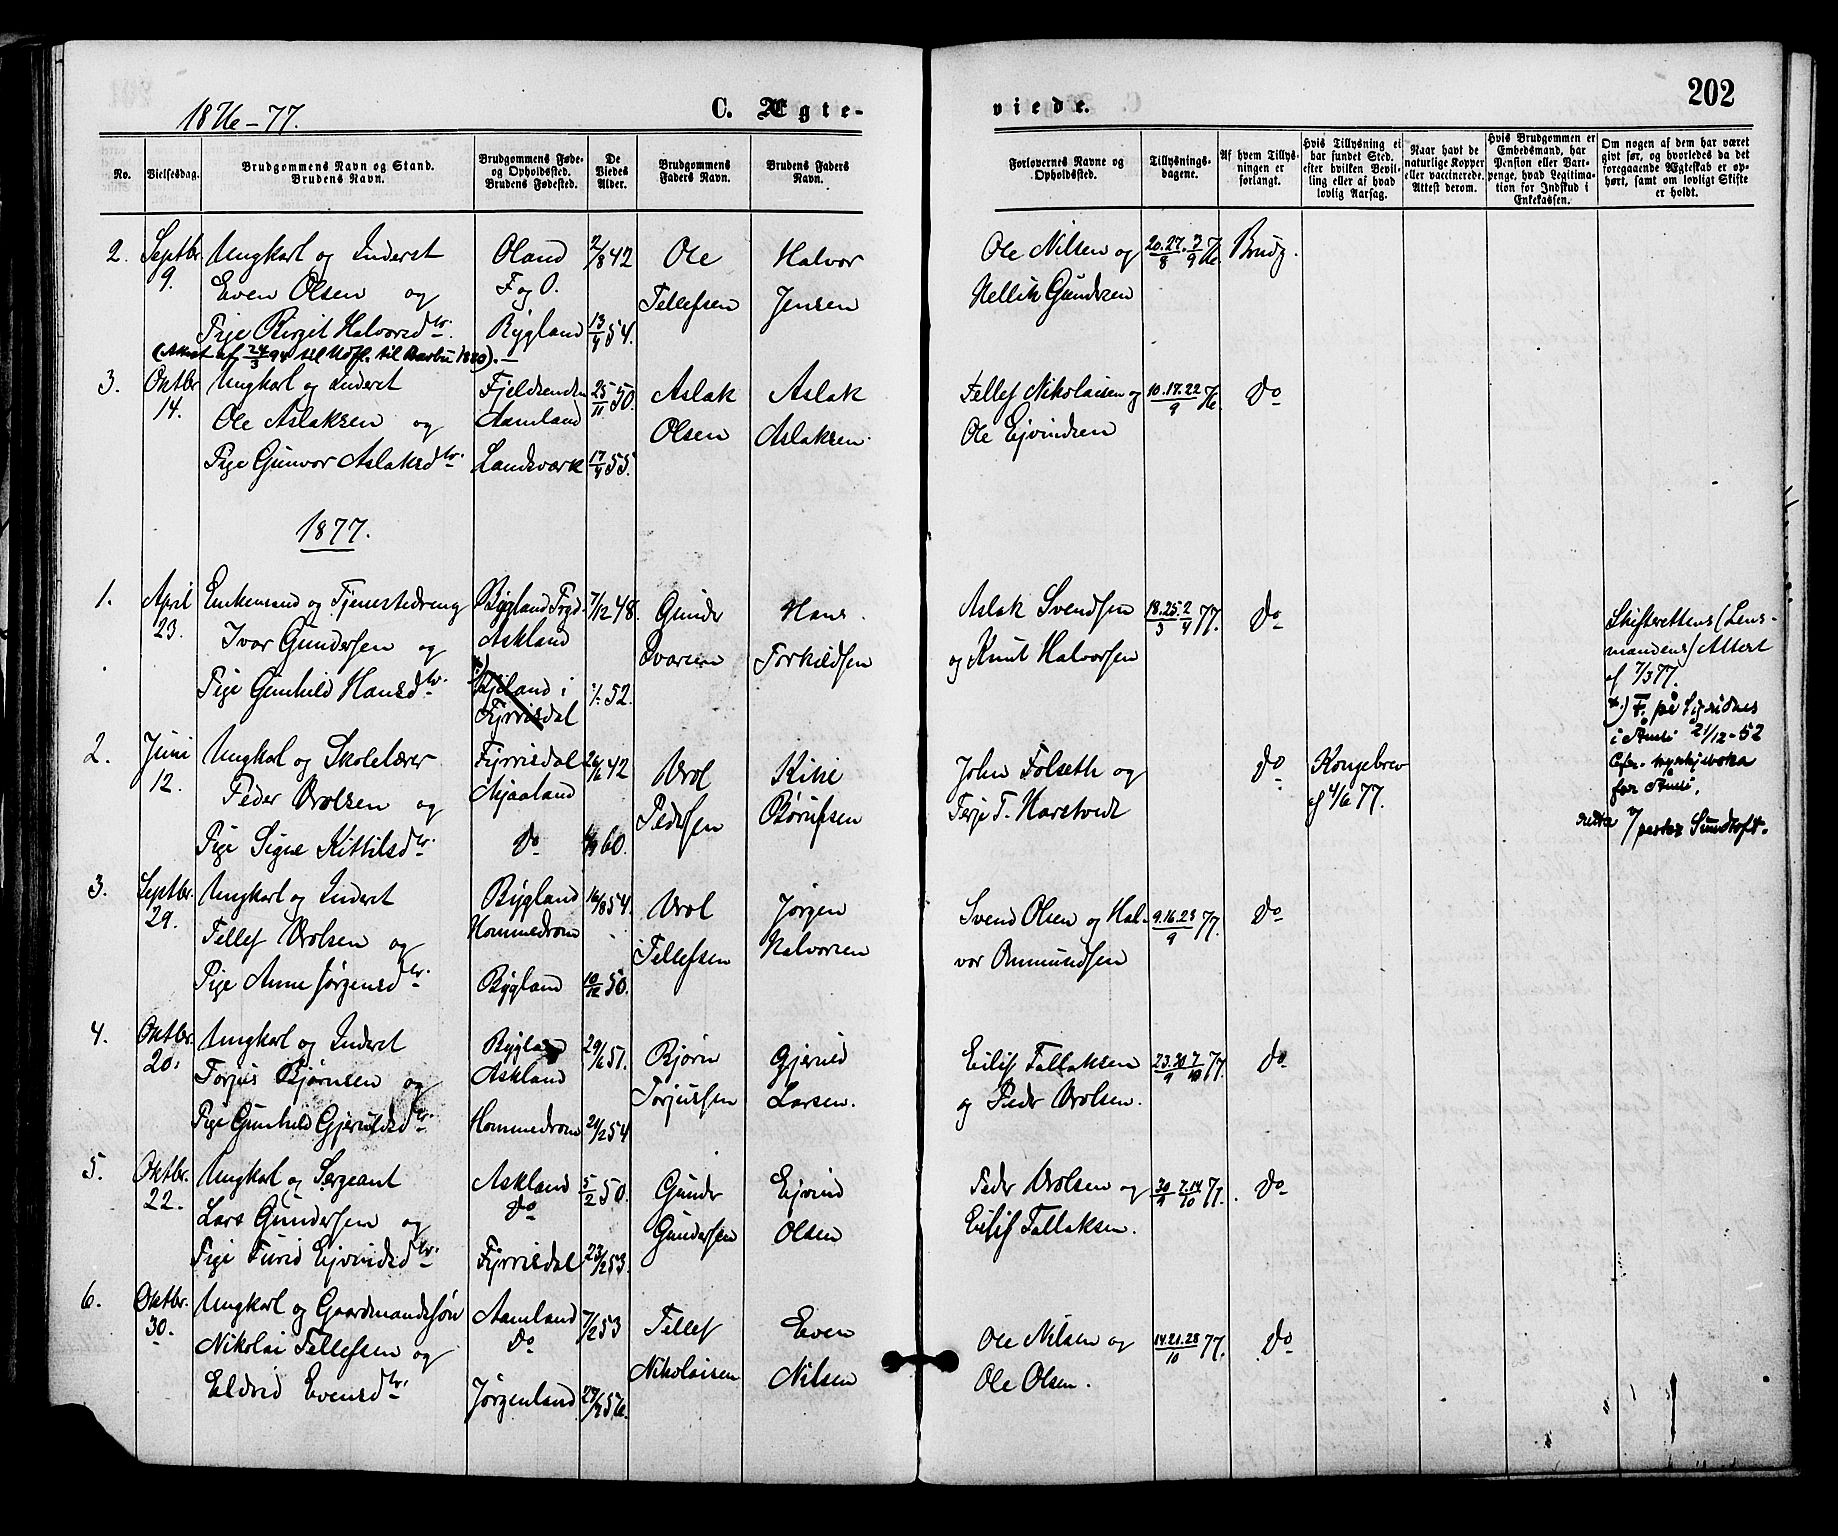 202
1876-77.
C. Ægte-
viede.
No.
Vielsesdag.
Brudgommens Navn og Stand.
Brudens Navn.
Brudgommens Føde-
og Opholdssted.
Brudens Fødested.
De
Viedes
Alder.
Brudgommens
Faders Navn.
Brudens Faders
Navn.
Forlovernes Navne og
Opholdssted.
Tillysnings-
dagene.
Af hvem Tillys-
ningen er
forlangt.
Hvis Tillysning ei
har fundet Sted,
efter hvilken Bevil-
ling eller af hvad
lovlig Aarsag.
Naar havt de
naturlige Kopper
eller vaccinerede.
Attest derom.
Hvis Brudgommen er
Embedsmand, har
Pension eller Vart-
penge, hvad Legitima-
tion for Indskud i
Enkekassen.
Om nogen af dem har været
givt før, og hvorledes da det
foregaaende Ægteskab er op-
hørt, samt om lovligt Skifte
er holdt.
2. Septbr. Ungkarl og Inderst Oland 2/8 42 Ole Halvor Ole Nilsen og 20.27./8 3/9 76 Brudg.
9. Even Olsen og F og O. Tellefsen Jensen Nellik Gundersen
Pige Birgit Halvorsdtr. Bygland 13/4 54.
(Attest af 24/3 94 til Udfl. til Barbu 1880).
3. Oktbr Ungkarl og Inderst Fjeldsenden 25/11 50. Aslak Aslak Tellef Nikolaisen og 10.17.22/9 76 Do
14. Ole Aslaksen og Aamland Olsen Aslaksen. Ole Ejvindsen
Pige Gunvor Aslaksdtr. Landsværk 17/4 55.
1877.
1. April Enkemand og Tjenestedreng Bygland 7/12 48. Gunder Hans Aslak Svendsen 18.25./3 2/4 77. Do Skifterettens (Lens-
23. Ivar Gundersen og Askland Ivarsen Torkildsen og Knut Halvorsen mandens) Attest
af 7/3 77.
Pige Gunhild Hansdtr. x) Kjiland i Fyrrisdal 52. x) F. på Sigridnes
i Åmli 21/12-52
Cfr. kyrkjeboka
for Åmli.
retta 7/ Sundtoft.
2. Juni Ungkarl og Skolelærer Fyrrisdal 26/6 42 Vrol Kitil John Folseth og Do Kongebrev
12. Peder Vrolsen og Mjaaland Pedersen Børufsen Terje T. Harstvedt af 4/6 77.
Pige Signe Kittilsdtr. Do 60.
3. Septbr. Ungkarl og Inderst Bygland 16/8 54. Vrol Jørgen Svend Olsen og Hal- 9.16.23/9 77. Do
29. Tellef Vrolsen og Hommedrom Tellefsen Halvorsen vor Ommundsen
Pige Anne Jørgensdtr. Bygland 10/12 50.
4. Oktbr. Ungkarl og Inderst Bygland 29/6 51. Bjørn Gjeruld Eilif Tallaksen 23.30/9 7/10 77. Do
20. Torjus Bjørnsen og Askland Torjussen Larsen. og Peder Vrolsen.
Pige Gunhild Gjeruldsdtr. Hommedrom 24/2 54
5. Oktbr. Ungkarl og Sergeant Askland 5/2 50. Gunder Ejvind Peder Vrolsen og 30/9 7.14/10 77. Do
22. Lars Gundersen og Do Gundersen Olsen Eilif Tallaksen.
Pige Turid Ejvindsdtr. Fyrrisdal 23/2 53.
6. Oktbr. Ungkarl og Gaardmandssøn Aamland 7/2 53 Tellef Even Ole Nilsen og 14.21.28/10 77. Do
30. Nikolai Tellefsen og Do Nikolaisen Nilsen Ole Olsen.
Eldrid Evensdtr. Jørgenland 56.